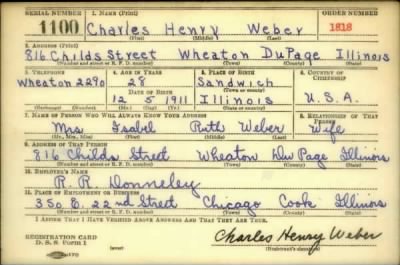 SERIAL NUMBER 1. NAME (Print) ORDER NUMBER
1100 Charles Henry Weber 1818
(First) (Middle) (Last)
2. ADDRESS (Print)
816 Childs Street Wheaton DuPage Illinois
(Number and street or R. F. D. number) (Town) (County) (State)
3. TELEPHONE 4. AGE IN YEARS 5. PLACE OF BIRTH 6. COUNTRY OF CITIZENSHIP
Wheaton 2290 28 Sandwich
DATE OF BIRTH (Town or county)
12 5 1911 Illinois U.S.A.
(Exchange) (Number) (Mo.) (Day) (Yr.) (State or country)
7. NAME OF PERSON WHO WILL ALWAYS KNOW YOUR ADDRESS 8. RELATIONSHIP OF THAT PERSON
Mrs Isabel Ruth Weber Wife
(Mr., Mrs., Miss) (First) (Middle) (Last)
9. ADDRESS OF THAT PERSON
816 Childs Street Wheaton Du Page Illinois
(Number and street or R. F. D. number) (Town) (County) (State)
10. EMPLOYER'S NAME
R. R. Donneley
11. PLACE OF EMPLOYMENT OR BUSINESS
350 E. 22nd Street Chicago Cook Illinois
(Number and street or R. F. D. number) (Town) (County) (State)
I AFFIRM THAT I HAVE VERIFIED ABOVE ANSWERS AND THAT THEY ARE TRUE.
REGISTRATION CARD
D. S. S. Form 1 Charles Henry Weber
(Registrant's signature)